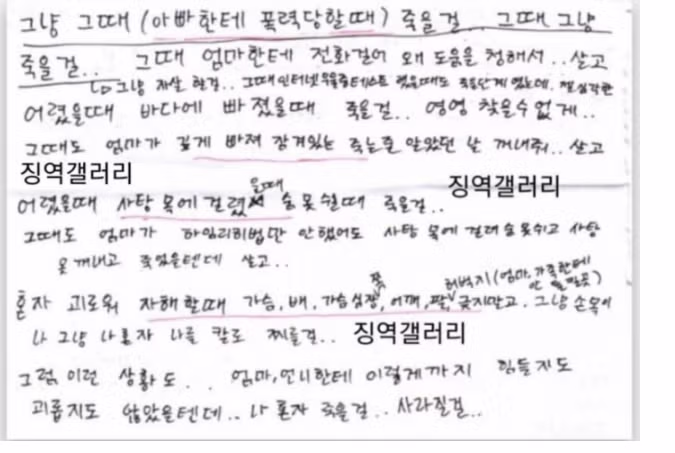 그냥 그때 (아빠한테 폭력당할때) 죽을걸... 그때 그냥
죽을걸.. 그때 엄마한테 전화걸어 왜 도움을 청해서.. 살고
↳ 그냥 자살 할걸.. 그때 인터넷 우울증테스트 했을때도 심각한
어렸을때 바다에 빠졌을때 죽을걸.. 영영 찾을수 없게..
그때도 엄마가 깊게 빠져 잠겨있는 죽는줄 알았던 날 꺼내줘.. 살고
징역갤러리
징역갤러리
어렸을때 사탕 목에 걸렸을때 숨 못쉴때 죽을걸..
그때도 엄마가 하임리히법만 안했어도 사탕 목에 걸려 숨못쉬고 사탕
못 꺼내고 죽었을텐데 살고..
허벅지(엄마, 가족한테 안
혼자 괴로워 자해할때 가슴, 배, 가슴심장쪽, 어깨, 팔 긋지말고. 그냥 손목이
나 그냥 나혼자 나를 칼로 찌를걸..
징역갤러리
그럼 이런 상황도.. 엄마, 언니한테 이렇게까지 힘들지도
괴롭지도 않았을텐데.. 나 혼자 죽을걸.. 사라질걸..